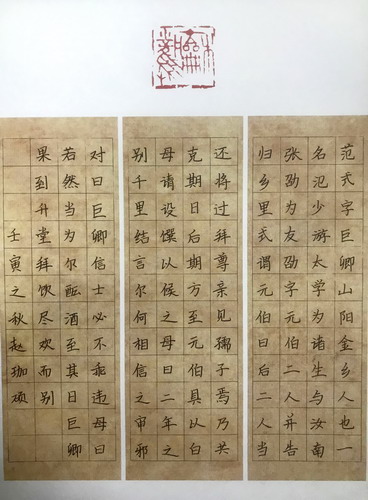 范式字巨卿山阳金乡人也一
名氾少游太学为诸生与汝南
张劭为友劭字元伯二人并告
归乡里式谓元伯曰后二人当
还将过拜尊亲见孺子焉乃共
克期日后期方至元伯具以白
母请设馔以候之母曰二年之
别千里结言尔何相信之审邪
对曰巨卿信士必不乖违母曰
若然当为尔酝酒至其日巨卿
果到升堂拜饮尽欢而别
壬寅之秋赵珈